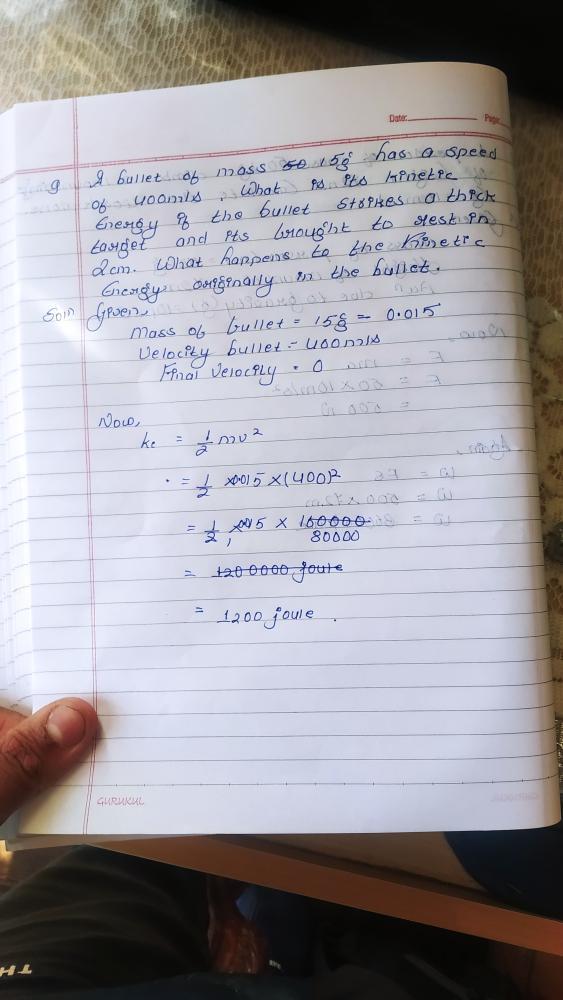 Date:
Page:
9 A bullet of mass 50 15g has a speed
of 400m/s. What is its kinetic
Energy if the bullet strikes a thick
target and its brought to rest in
2cm. What happens to the kinetic
Energy originally in the bullet.
Soln Given,
Mass of bullet = 15g = 0.015
Velocity bullet = 400m/s
Final velocity = 0
Now,
ke = 1/2 mv²
= 1/2 × 0.015 × (400)²
= 1/2 × 0.015 × 160000
80000
= 1200000 joule
= 1200 joule.
GURUKUL
TH